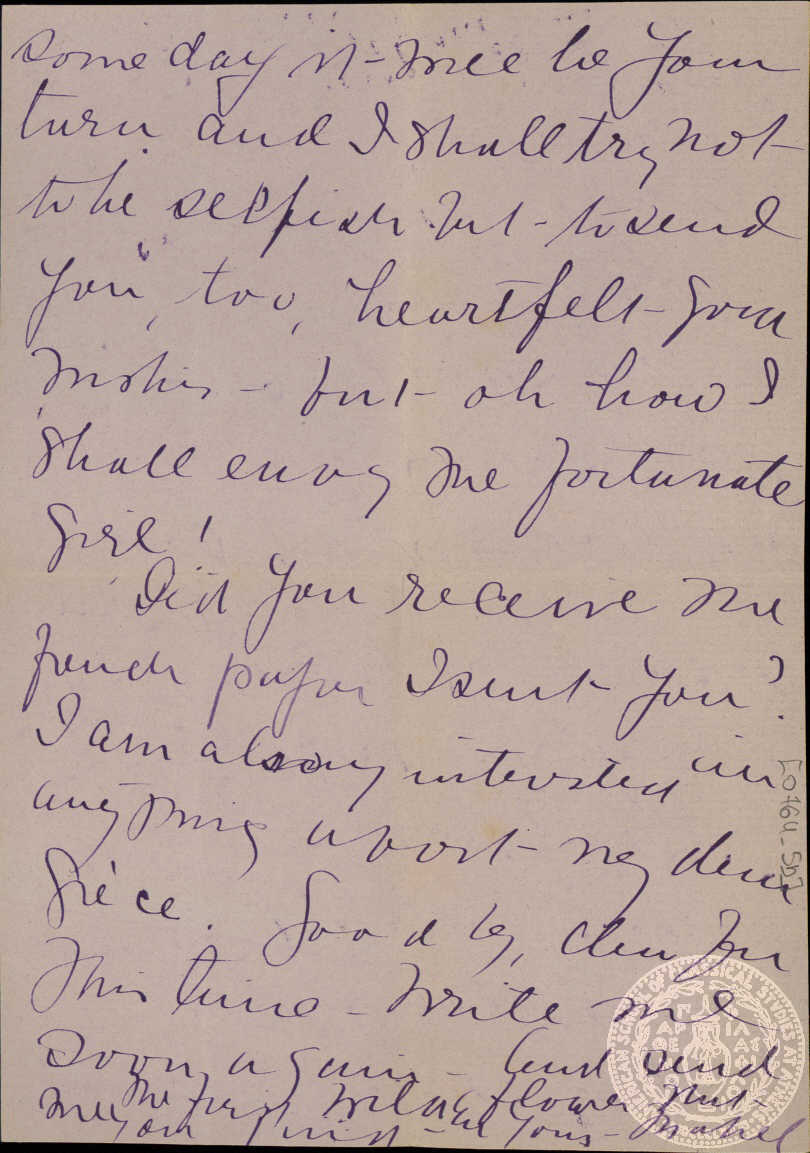 some day it will be your
turn and I shall try not
to be selfish but to send
you, too, heartfelt good
wishes - but oh how I
shall envy the fortunate
girl!
Did you receive the
french paper I sent you?
I am always interested in
anything about my dear
Grèce. Good by, dear for
this time - Write me
soon again - and send
me the first wild flower that
you find - Yours - Mabel
AMERICAN SCHOOL OF CLASSICAL STUDIES AT ATHENS